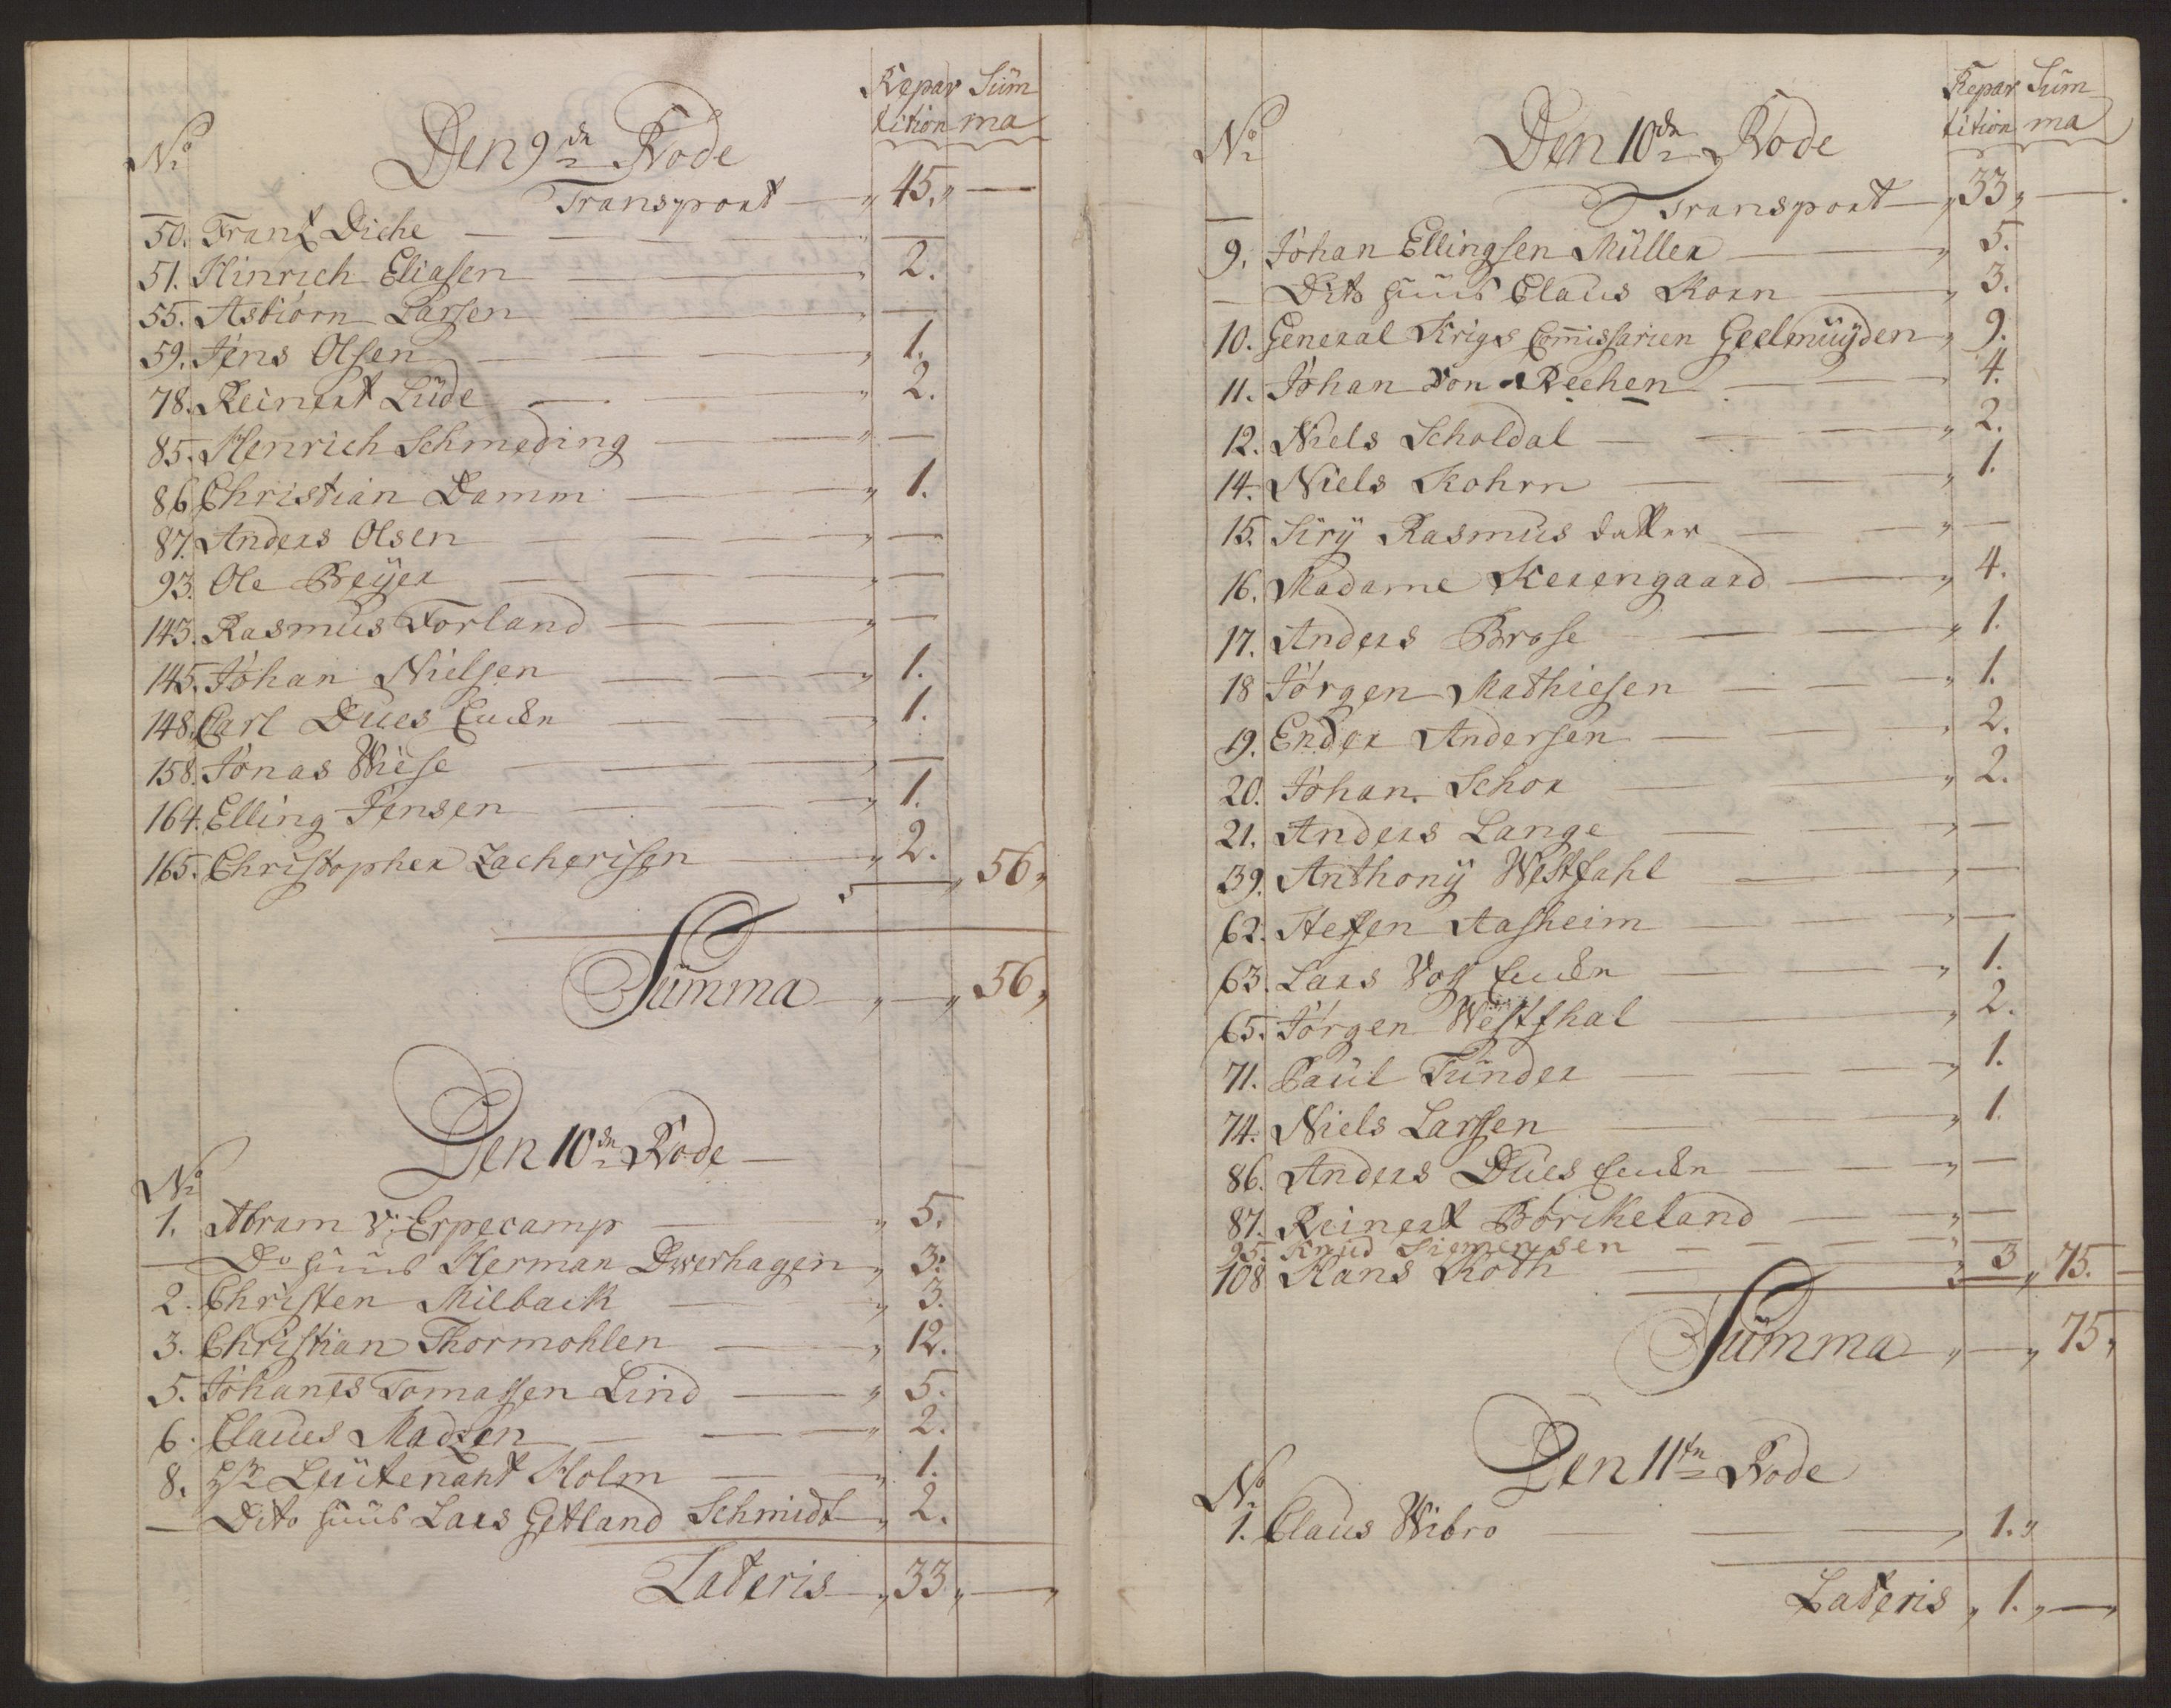 Repar Süm
No Den 9de Rode tition ma
Transport 45.
50. Frantz Diche
51. Hinrich Eliasen 2.
55. Asbiörn Larsen
59. Jens Olsen 1.
78. Reinert Lüde 2.
85. Henrich Schmeding
86. Christian Damm 1.
87. Anders Olsen
93. Ole Beÿer
143. Rasmus Forland
145. Johan Nielsen 1.
148. Carl Dues Encke 1.
158. Jonas Wiese
164. Elling Jensen 1.
165. Christopher Zacherisen 2. 56
Summa 56
Den 10de Rode
No
1. Abram v. Erpecamp 5.
Do huus Herman Dwerhagen 3.
2. Christen Milback 3.
3. Christian Thormohlen 12.
5. Johanes Tomassen Lind 5.
6. Claues Madzen 2.
8. Hr Leütenant Holm 1.
Dito huus Lars Getland Schmidt 2.
Lateris 33
Repar Süm
No Den 10de Rode tition ma
Transport 33
9. Johan Ellingsen Müller 5.
Dito huus Claus Korn 3.
10. General Krigs Comissarien Geelmüÿden 9.
11. Johan von Reehen 4.
12. Niels Scholdal 2.
14. Niels Kohrn 1.
15. Sirÿ Rasmus datter
16. Madame Kerengaard 4.
17. Anders Brose 1.
18 Jörgen Mathiesen 1.
19. Ender Andersen 2.
20. Johan Schor 2.
21. Anders Lange
39. Anthonÿ Westfahl
62. Steffen Aasheim
63. Lars Voss Encke 1.
65. Jörgen Westfhal 2.
71. Paül Tünder 1.
74. Niels Larssen 1.
86. Anders Dües Encke
87. Reinert Börikeland
95. Knud Siemensen
108 Hans Roth 3 75.
Summa 75
Den 11te Rode
No
1. Claus Wibro 1.
Lateris 1.